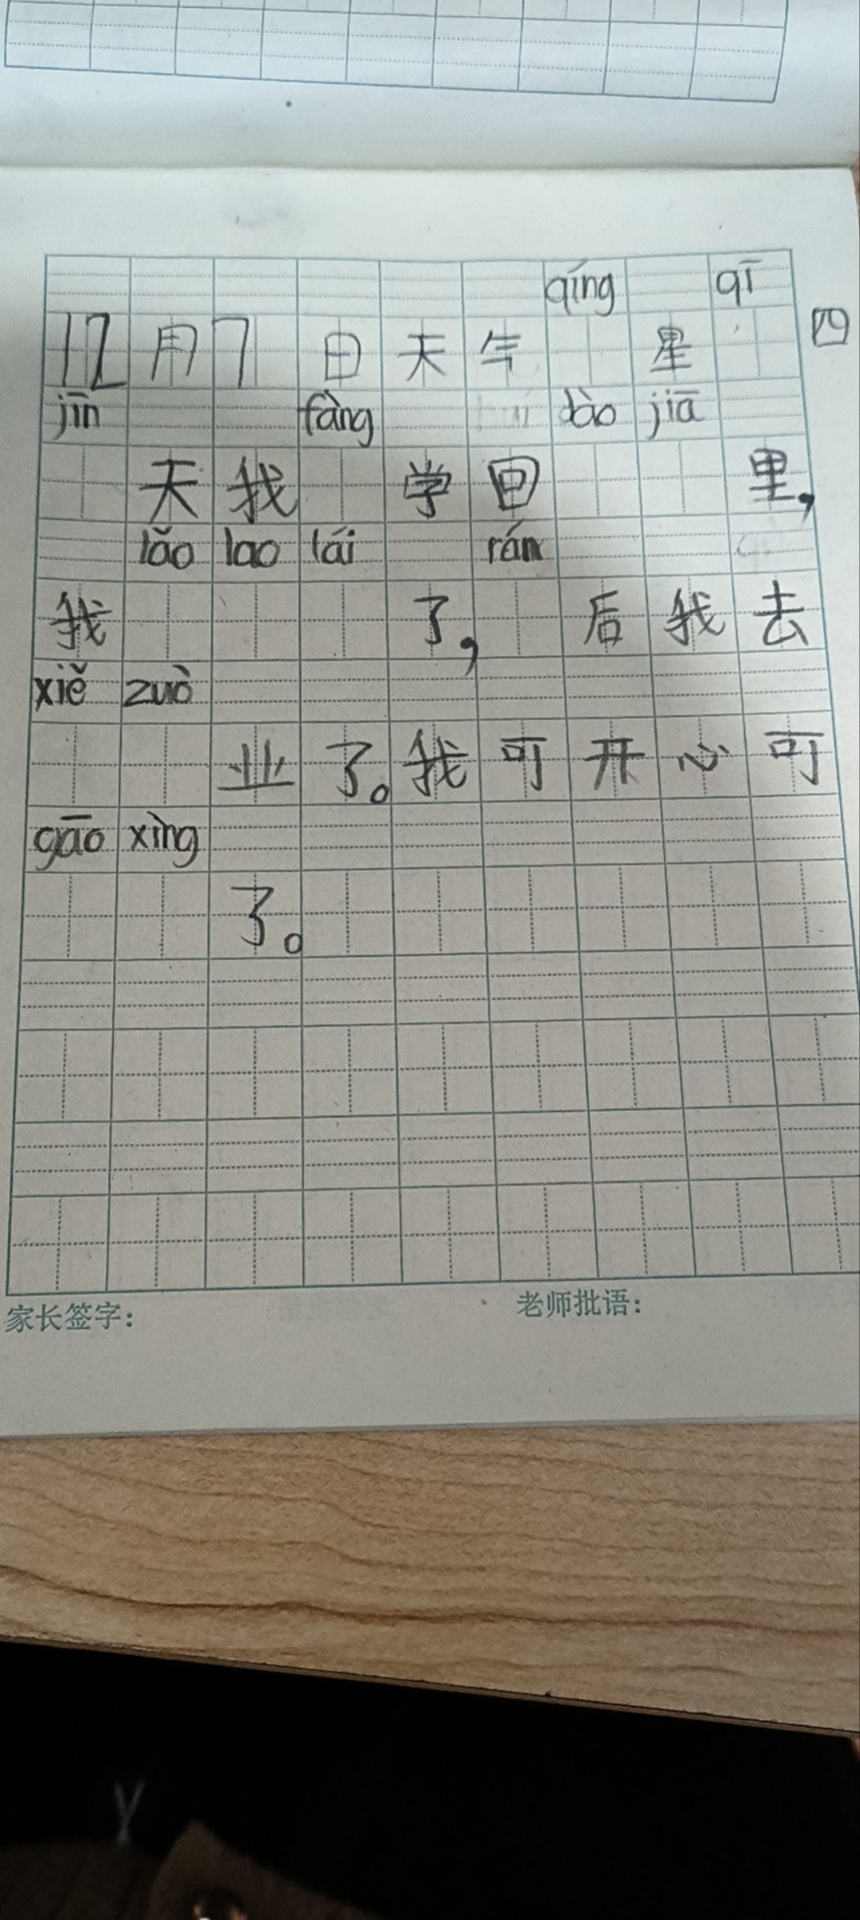 qíng qī
12用7日天气 星 四
jīn fàng dào jiā
天我 学回 里,
lǎo lao lái rán
我 了, 后我去
xiě zuò
业了。我可开心可
gāo xìng
了。
家长签字: 老师批语: